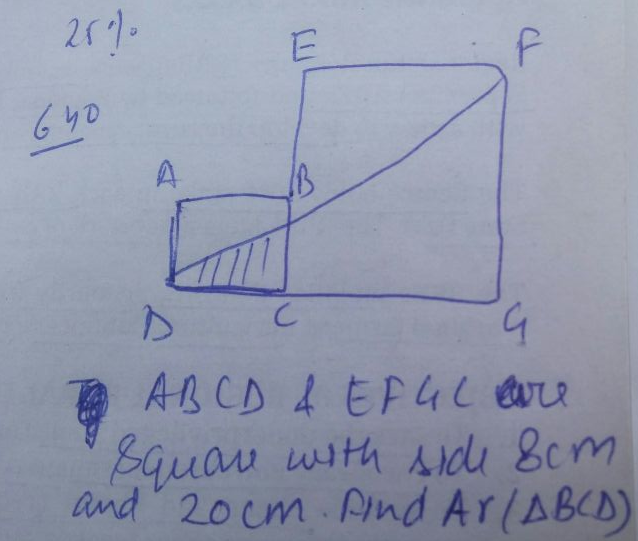 25%
640
E F
A B
D C G
ABCD & EFGC are
Square with side 8cm
and 20cm. Find Ar(ΔBCD)